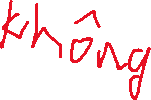 không